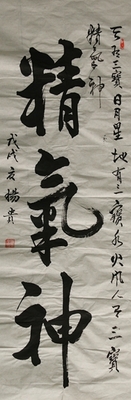 天有三寶日月星地有三寶水火風人有三寶
精氣神
精氣神
戊戌